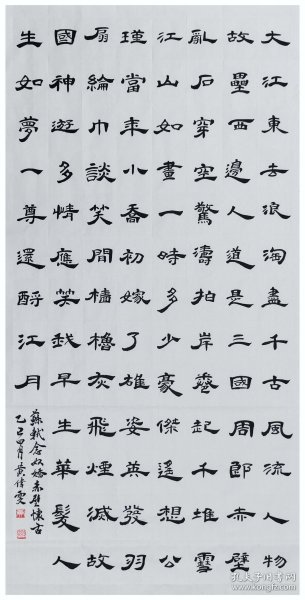 大江東去浪淘盡千古風流人物
故壘西邊人道是三國周郎赤壁
亂石穿空驚濤拍岸卷起千堆雪
江山如畫一時多少豪傑遙想公
瑾當年小喬初嫁了雄姿英發羽
扇綸巾談笑間檣櫓灰飛煙滅故
國神遊多情應笑我早生華髮人
生如夢一尊還酹江月
蘇軾念奴嬌赤壁懷古
乙巳四月黃偉雯